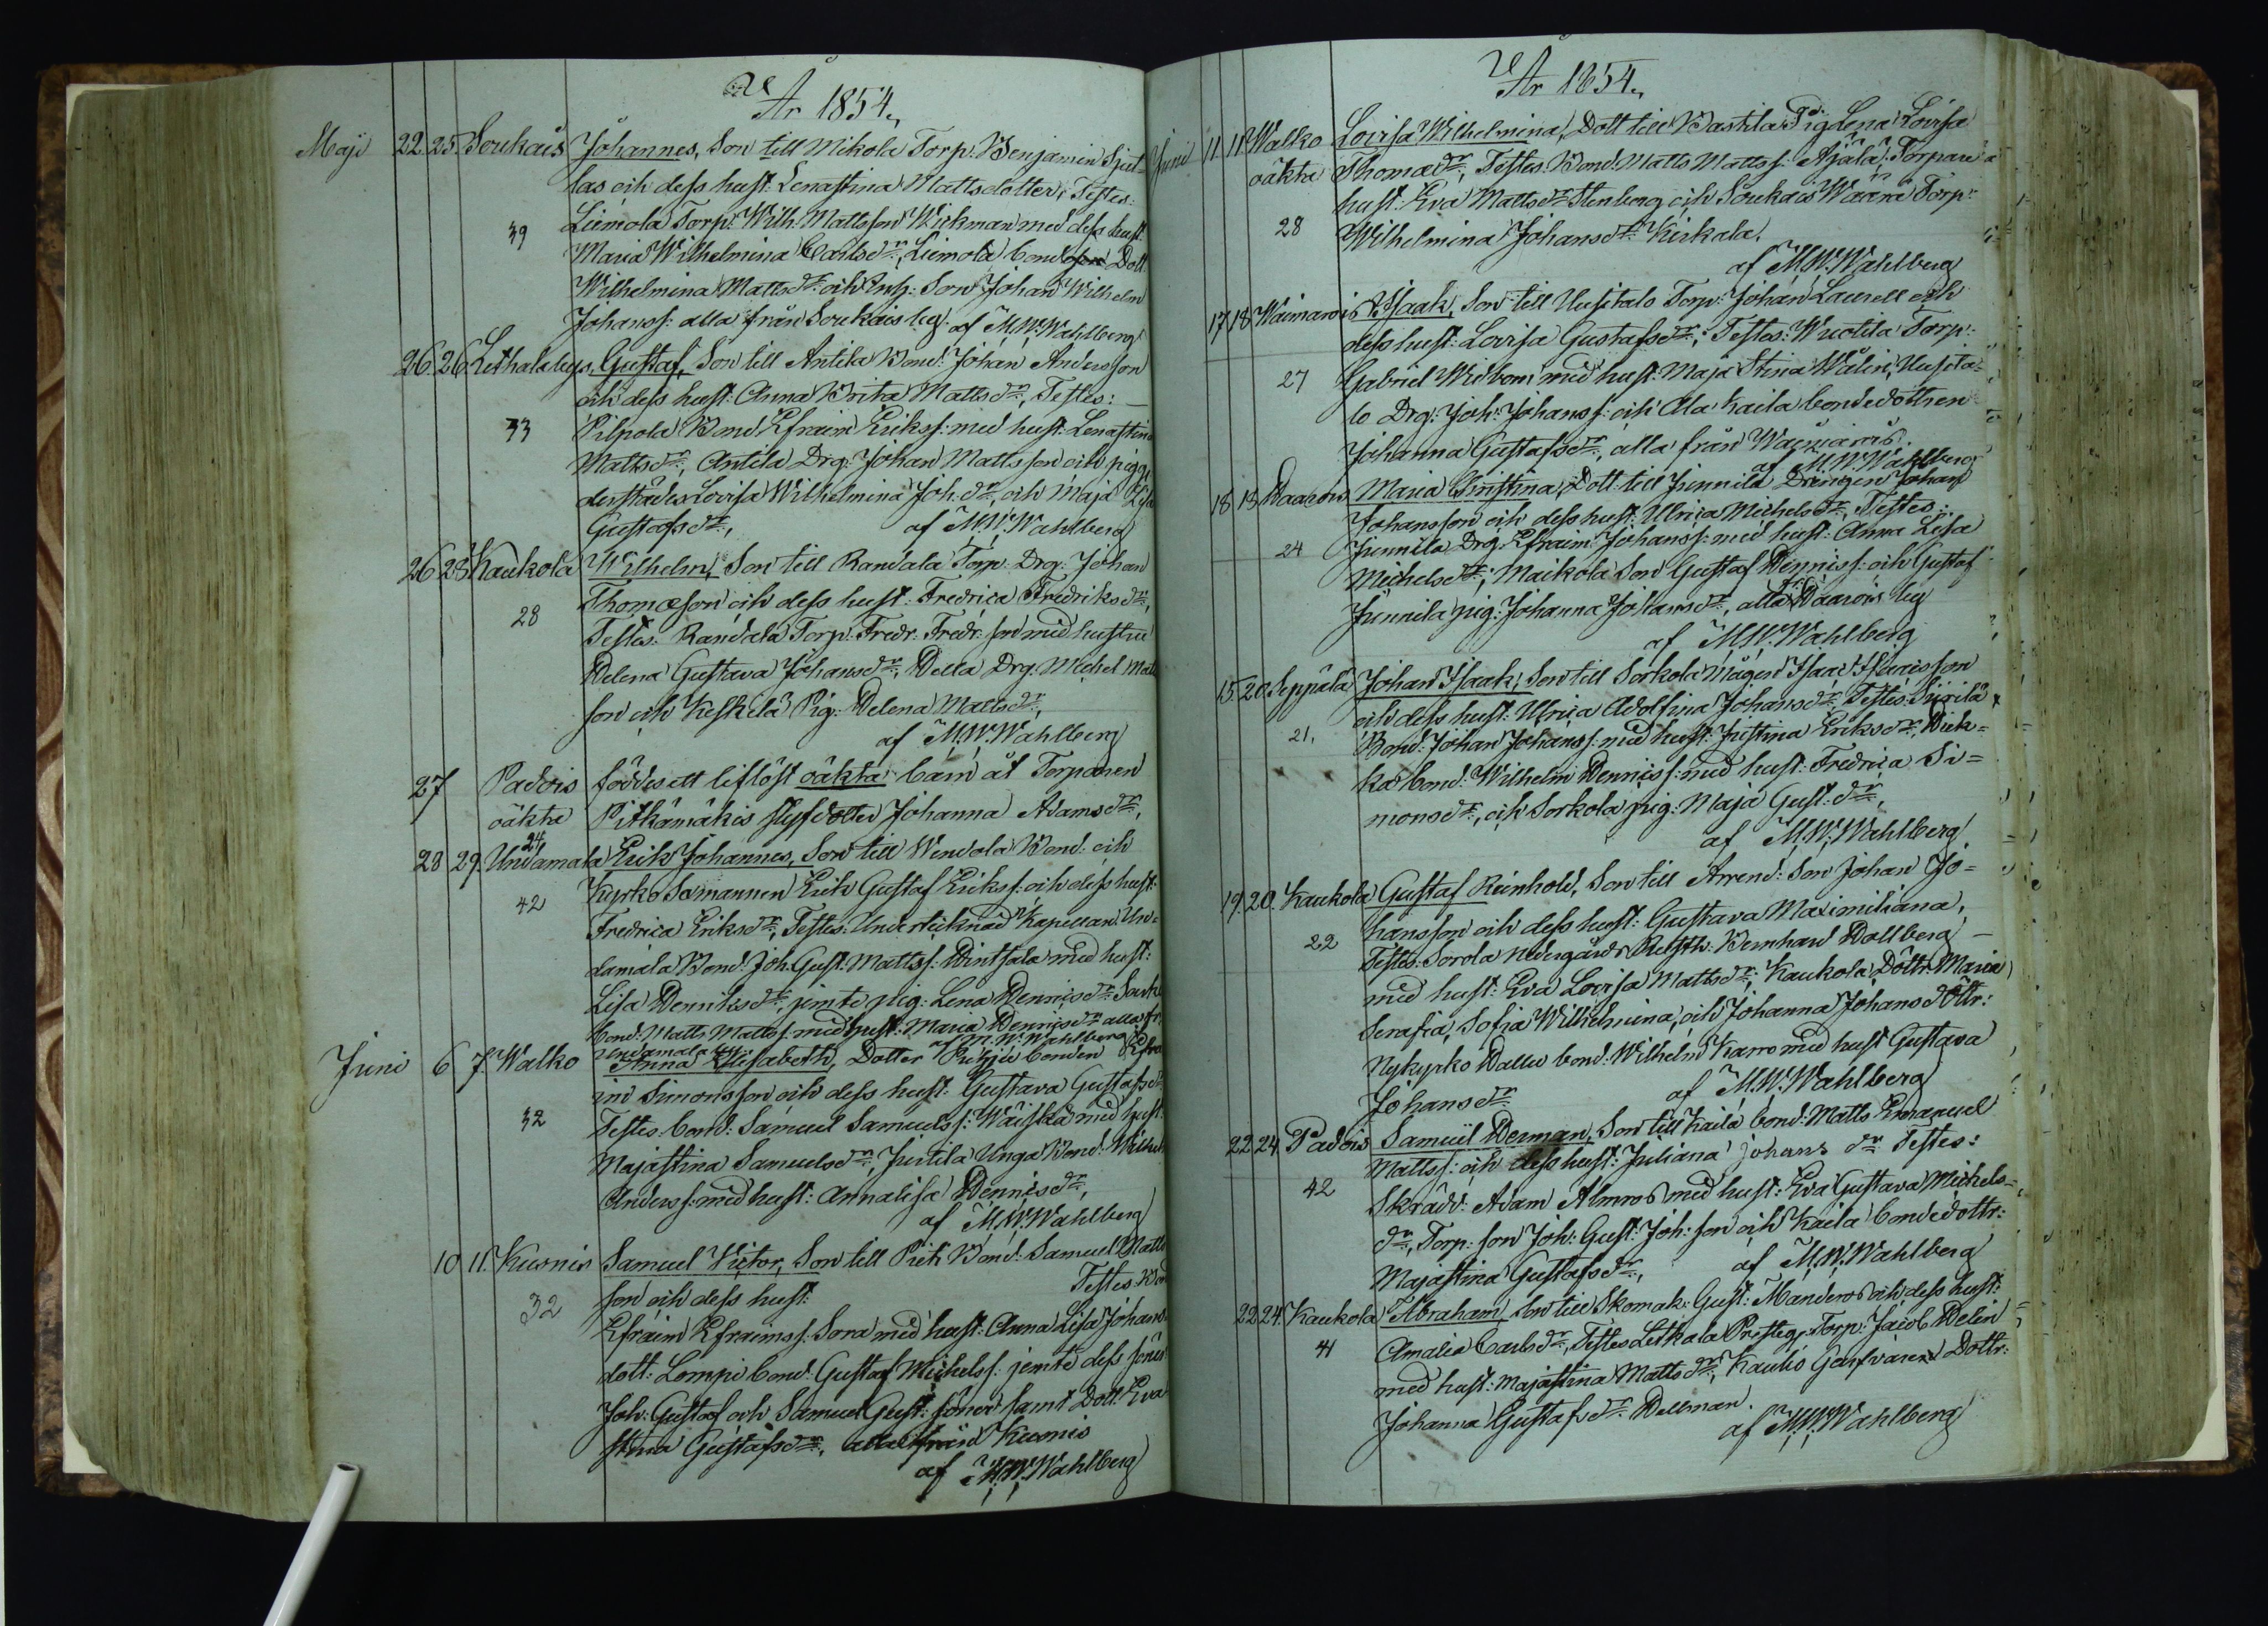 År 1854.
Maji 22. 25. Soukais Johannes, Son till Mikola Torp: Benjamin Sjul-
las och dess hust: Lenastina Mattsdotter, Testes:
39 Liemola Torp: Wilh: Mattsson Wickman med dess hust:
Maria Wilhelmina Carlsdr, Liemola bond Dott
Wilhelmina Mattsdr och Insp: Son Johan Wilhelm
Johanss: alla från Soukais by. af M.W. Wahlberg
26. 26. Lethala by. Gustaf, Son till Antila Bond: Johan Andersson
och dess hust: Anna Brita Mattsdr, Testes:
33 Pilpola Bond: Efraim Erikss: med hust: Lenastina
Mattsdr, Antila Drg: Johan Mattsson och pig:
derstädes Lovisa Wilhelmina Joh:dr, och Maja Lisa
Gustafsdr, af M.W. Wahlberg
26 28 Kaukola Wilhelm, Son till Randala Torp: Drg: Johan
28 Thomæson och dess hust: Fredrica Fredriksdr,
Testes: Randala Torp: Fredr: Fredr: son med hustru
Helena Gustava Johansdr, Hella Drg: Michel Matts
son och Keskilä Pig: Helena Mattsdr,
af M.W. Wahlberg
27 Padois föddes ett liflöst oäkta barn åt Torparen
oäkta Pitkämäkis styfdotter Johanna Adamsdr,
24
28 29. Undamala Erik Johannes, Son till Wendola Bond: och
42 Kyrko Sexmannen Erik Gustaf Erikss: och dess hust:
Fredrica Eriksdr, Testes: Undertecknad Kapellan Un-
damala Bond: Joh: Gust: Mattss: Hintsala med hust:
Lisa Henriksdr, jemte pig: Lena Hennisdr Sauk
bond: Matts Mattss: med hust: Maria Hennisdr alla fr:
Undamala by. af M.W. Wahlberg
Juni 6 7. Walko Anna Elisabeth, Dotter Pietzjis bonden Efra
im Simonsson och dess hust: Gustava Gustafsdr
32 Testes: bond: Samuel Samuelss: Wäiskä med hust:
Majastina Samuelsdr, Juntila Unga Bond: Wilhelm
Anderss: med hust: Annalisa Hennisdr,
af M.W. Wahlberg
10 11. Kusnis Samuel Victor, Son till Prek Bond: Samuel Matts
32 son och dess hust: Testes: Bond
Efraim Efraimss: Sora med hust: Anna Lisa Johans
dott: Lempi bond: Gustaf Michelss: jemte dess söner
Joh: Gustaf och Samuel Gust: söner samt Dott: Eva
stina Gustafsdr, alla från Kusnis
af M.W. Wahlberg
År 1854.
Juni 11. 11. Walko Lovisa Wilhelmina, Dott till Bastila Pig: Lena Lovisa
oäkta Thomædr, Testes: Bond: Matts Mattss: Ajälä, Torparen
hust: Eva Mattsdr Stenberg och Soukais Waära Torp:
28 Wilhelmina Johansdr Kirkala.
af M.W. Wahlberg
17 18 Waimarois Isaak, Son till Uusitalo Torp: Johan Laurell och
dess hust: Lovisa Gustafsdr, Testes: Wuotila Torp:
27 Gabriel Widbom med hust: Maja Stina Walin, Uusita-
lo Drg: Joh: Johanss: och Ala Kaila bondedottren
Johanna Gustafsdr, alla från Waimarois.
af M.W. Wahlberg
18 18 Haarois Maria Christina, Dott: till Junnila Drengen Johan
Johansson och dess hust: Ulrica Michelsdr, Testes:
24 Junnila Drg: Efraim Johanss: med hust: Anna Lisa
Michelsdr, Maikola Son Gustaf Henniss: och Gustaf
Junnila pig: Johanna Johansdr, alla fr: Haarois by
af M.W. Wahlberg
15. 20. Seppälä Johan Isaak, Son till Sorkola Mågen Isaac Isaacsson
och dess hust: Ulrica Adolfina Johansdr, Testes: Siirilä
21. Bond: Johan Johanss: med hust: Justina Eriksdr, Wiek-
ka bond: Wilhelm Henniss: med hust: Fredrica Si-
monsdr, och Sorkola pig: Maja Gust:dr,
af M.W. Wahlberg
19. 20. Kaukola Gustaf Reinhold, Son till Arrend: Son Johan Jo-
22 hansson och dess hust: Gustava Maximiliana,
Testes: Sorola nedergårds Rusth: Bernhard Hollberg
med hust: Eva Lovisa Mattsdr, Kaukola Dottr: Maria
Serafia, Sofia Wilhelmina, och Johanna Johansdöttr:
Nykyrko Hallu bond: Wilhelm Karro med hust Gustava
Johansdr af M.W. Wahlberg
22 24 Padois Samuil Herman, Son till Kaila bond: Matts Emanuel
Mattss: och dess hust: Juliana Johansdr Testes:
42 Skrädd: Adam Almros med hust: Eva Gustava Michels-
dr, Torp: son Joh: Gust: Joh: son och Kaila bondedottr:
Majastina Gustafsdr, af M.W. Wahlberg
22 24. Kaukola Abraham, Son till Skomak: Gust: Manderos och dess hust:
41 Amalia Carlsdr, Testes Letkala Prestegs: Torp: Jacob Helin
med hust: Majastina Mattsdr, Kaukis Garfvaren Dottr:
Johanna Gustafsdr Hellman.
af M.W. Wahlberg